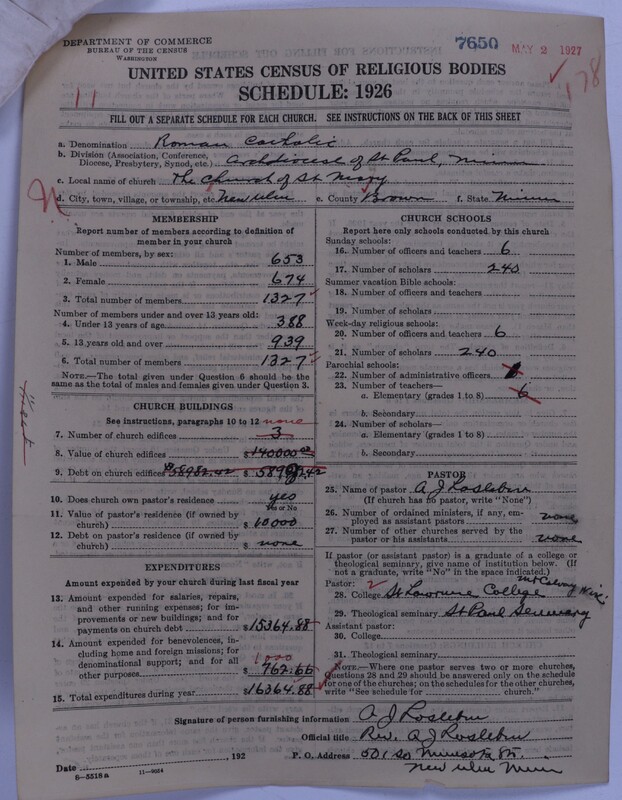 DEPARTMENT OF COMMERCE
BUREAU OF THE CENSUS
WASHINGTON
7650 MAY 2 1927
178
11
UNITED STATES CENSUS OF RELIGIOUS BODIES
SCHEDULE: 1926
FILL OUT A SEPARATE SCHEDULE FOR EACH CHURCH. SEE INSTRUCTIONS ON THE BACK OF THIS SHEET
a. Denomination Roman Catholic
b. Division (Association, Conference, Diocese, Presbytery, Synod, etc.) Archdiocese of St Paul, Minn
c. Local name of church The Church of St Mary
d. City, town, village, or township, etc. New Ulm e. County Brown f. State Minn
MEMBERSHIP
Report number of members according to definition of
member in your church
Number of members, by sex:
1. Male 653
2. Female 674
3. Total number of members 1327
Number of members under and over 13 years old:
4. Under 13 years of age 388
5. 13 years old and over 939
6. Total number of members 1327
NOTE.—The total given under Question 6 should be the
same as the total of males and females given under Question 3.
CHURCH BUILDINGS
See instructions, paragraphs 10 to 12 none
7. Number of church edifices 3
8. Value of church edifices $ 140000.00
9. Debt on church edifices $58982.42 $ 58982.42
10. Does church own pastor's residence yes
Yes or No
11. Value of pastor's residence (if owned by
church) $ 10000
12. Debt on pastor's residence (if owned by
church) $ none
EXPENDITURES
Amount expended by your church during last fiscal year
13. Amount expended for salaries, repairs,
and other running expenses; for im-
provements or new buildings; and for
payments on church debt $ 15364.88
14. Amount expended for benevolences, in-
cluding home and foreign missions; for
denominational support; and for all
1000
other purposes $ 762.66
15. Total expenditures during year $ 16364.88
CHURCH SCHOOLS
Report here only schools conducted by this church
Sunday schools:
16. Number of officers and teachers 6
17. Number of scholars 240
Summer vacation Bible schools:
18. Number of officers and teachers
19. Number of scholars
Week-day religious schools:
20. Number of officers and teachers 6
21. Number of scholars 240
Parochial schools:
22. Number of administrative officers
23. Number of teachers—
a. Elementary (grades 1 to 8) 6
b. Secondary
24. Number of scholars—
a. Elementary (grades 1 to 8)
b. Secondary
PASTOR
25. Name of pastor A J
(If church has no pastor, write "None")
26. Number of ordained ministers, if any, em-
ployed as assistant pastors none
27. Number of other churches served by the
pastor or his assistants none
If pastor (or assistant pastor) is a graduate of a college or
theological seminary, give name of institution below. (If
not a graduate, write "No" in the space indicated.)
Pastor: Mt Calvary Wis.
28. College St Lawrence College
29. Theological seminary St Paul Seminary
Assistant pastor:
30. College
31. Theological seminary
NOTE.—Where one pastor serves two or more churches,
Questions 28 and 29 should be answered only on the schedule
for one of the churches; on the schedules for the other churches,
write "See schedule for church."
Signature of person furnishing information A J
Official title Rev. A J
Date , 192 P. O. Address 501 So Minnesota St.
New Ulm Minn
8-5518a 11-9054